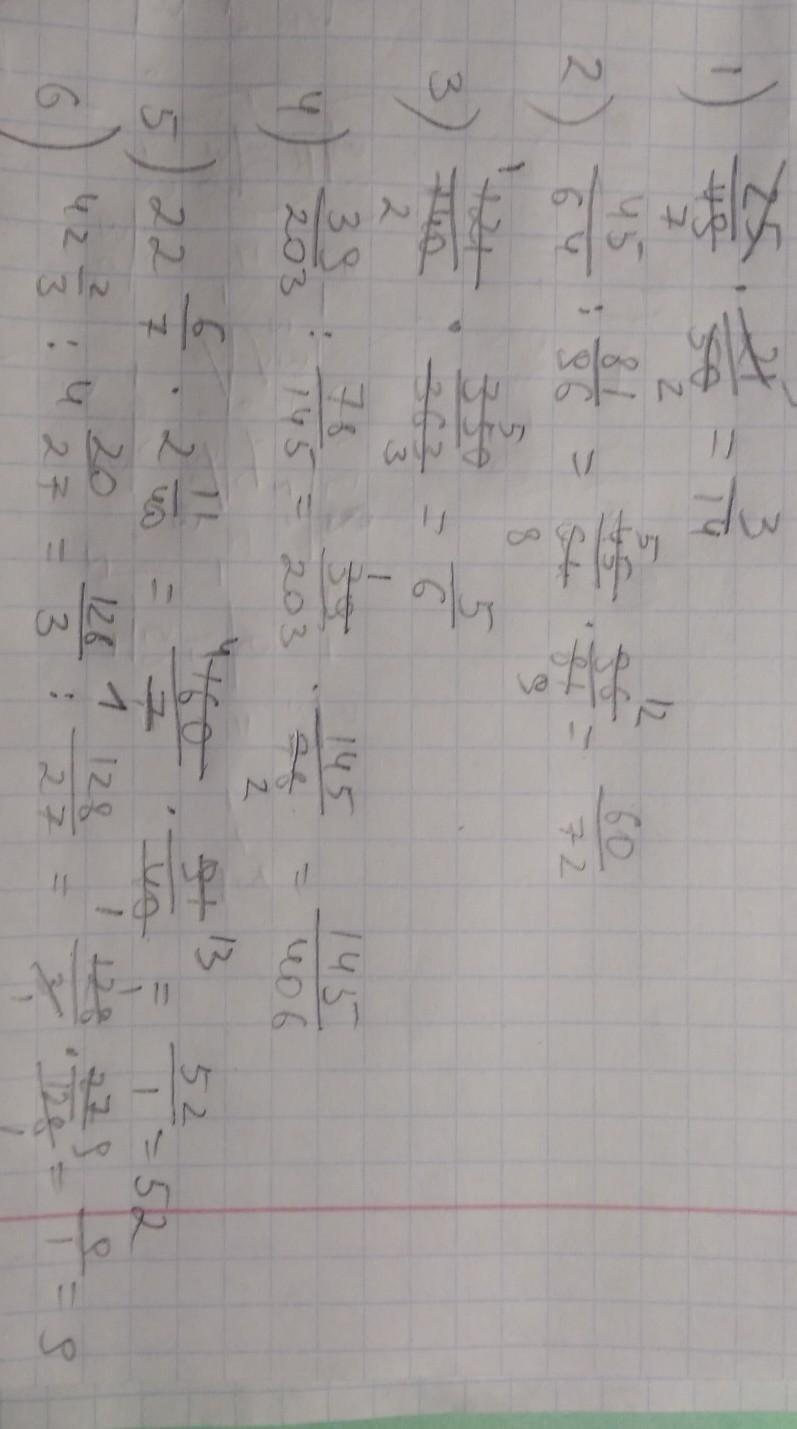 1) 25/49 · 21/50 = 3/14
7 2
2) 45/64 : 81/96 = 45/64 · 96/81 = 60/72
5 12 8 9
3) 121/140 · 350/363 = 5/6
1 5 2 3
4) 39/203 : 78/145 = 39/203 · 145/78 = 145/406
1 2
5) 22 6/7 · 2 11/40 = 160/7 · 91/40 = 52/1 = 52
4 13 1
6) 42 2/3 : 4 20/27 = 128/3 : 128/27 = 128/3 · 27/128 = 9/1 = 9
1 1 9 1 1